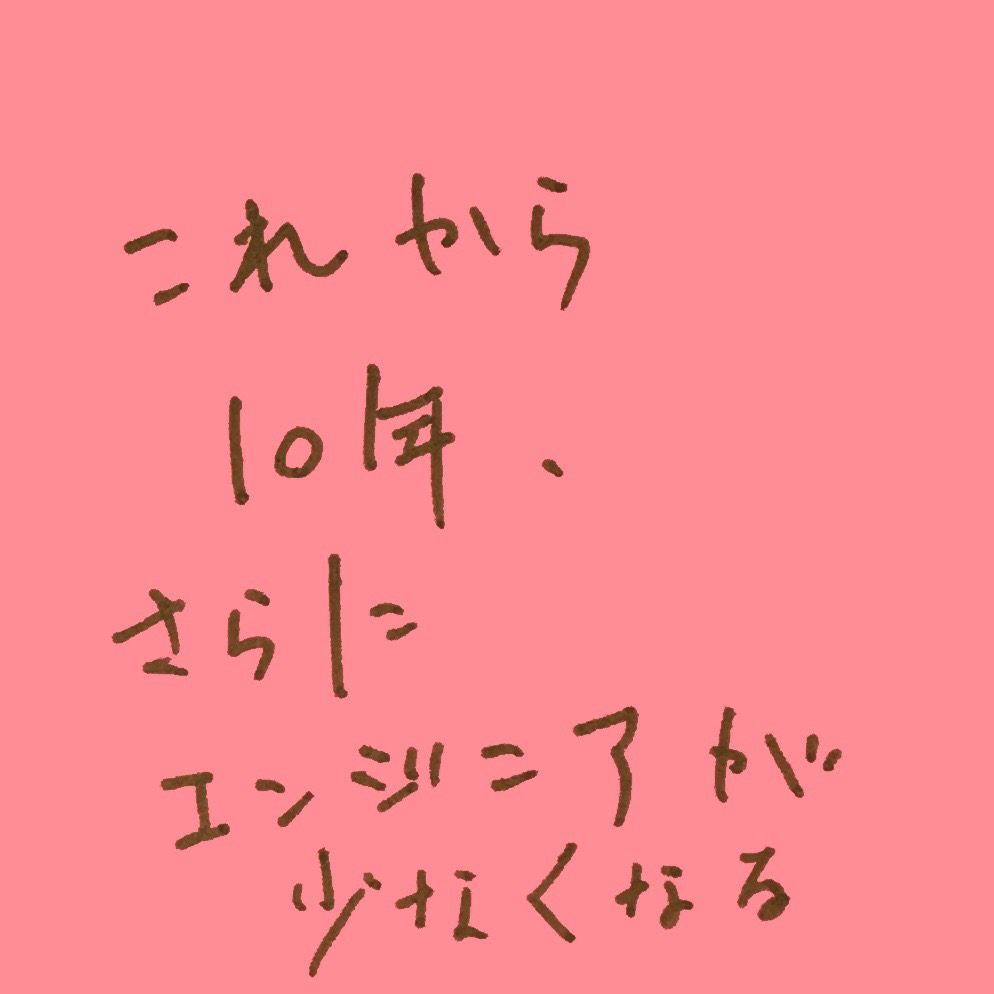 これから
10年、
さらに
エンジニアが
少なくなる